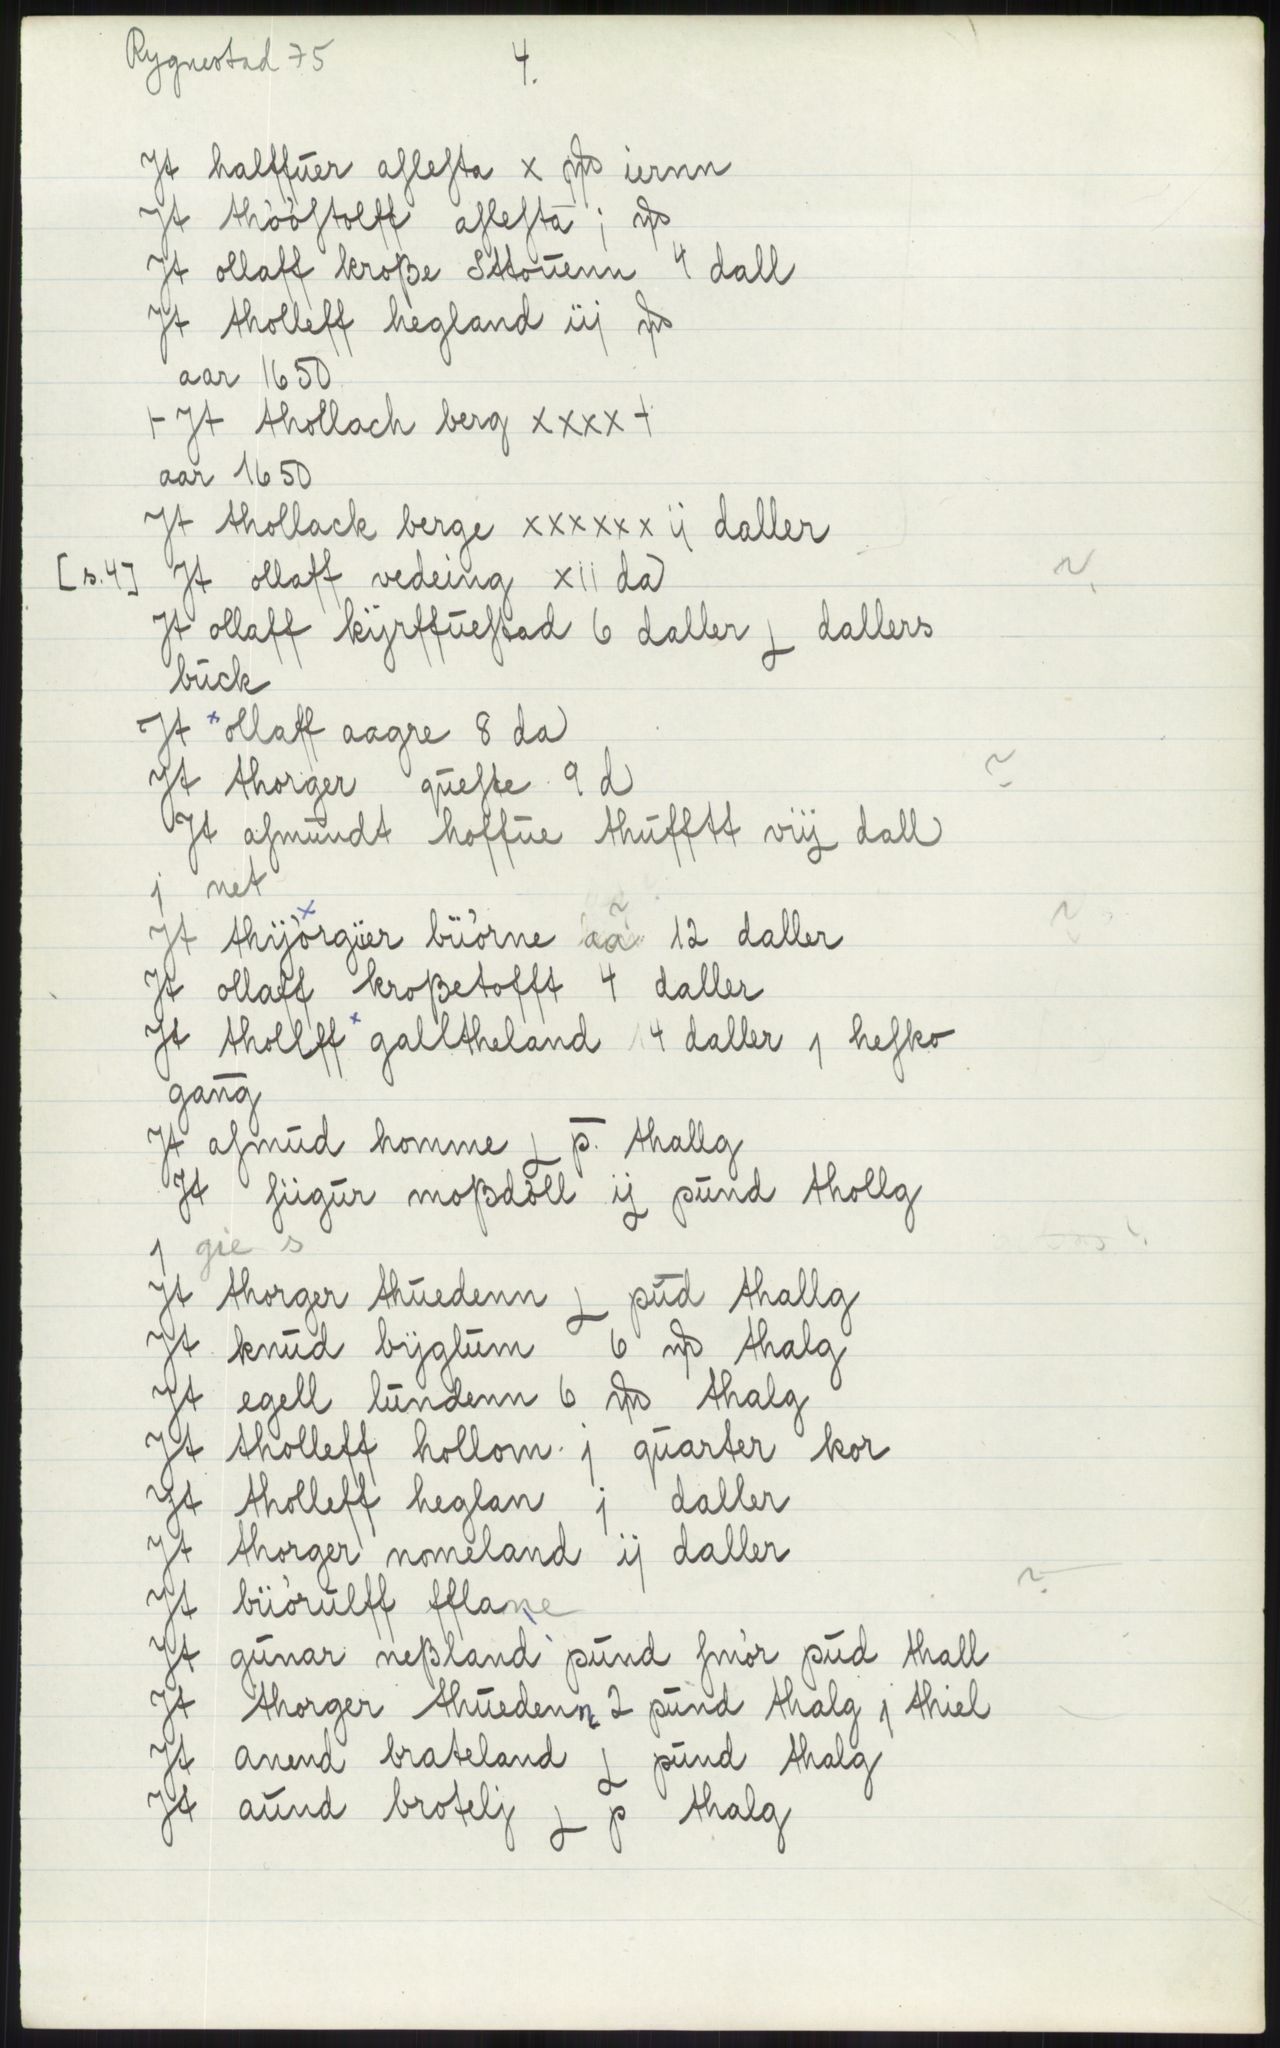 Rygnestad 75
4.
Jt halffuer aſleſta x ℔ iernn
Jt thòòſtolff aſleſta j ℔
Jt ollaff kroße Sttouenn 4 dall
Jt tholleff hegland iij ℔
aar 1650
+ Jt thollach berg xxxx +
aar 1650
Jt thollack berge xxxxxx ij daller
[s. 4] Jt ollaff vedeing xii da
Jt ollaff kÿrffueſtad 6 daller ɟ dallers
buck
Jt ˣollaff aagre 8 da
Jt thorger queſte 9 d
Jt aſmundt hoffue thufftt viij dall
j net
Jt thÿòrgüer büòrne aa 12 daller
Jt ollaff kroßetofft 4 daller
Jt thollffˣ galltheland 4 daller j heſko
gang
Jt aſmud homme ɟ p̄. thallg
Jt ſiigur moßdòll ij pund thollg
j gie s
Jt thorger thuedenn ɟ pud thallg
Jt knud bÿglum 6 ℔ thalg
Jt egell lundenn 6 ℔ thalg
Jt tholleff hollom j quarter kor
Jt tholleff heglan j daller
Jt thorger nomeland ij daller
Jt büòrulff fflane
Jt gunar neßland pund ſmòr pud thall
Jt thorger thuedenn 2 pund thalg j thiel
Jt anend brateland ɟ pund thalg
Jt aund brotelj ɟ p thalg